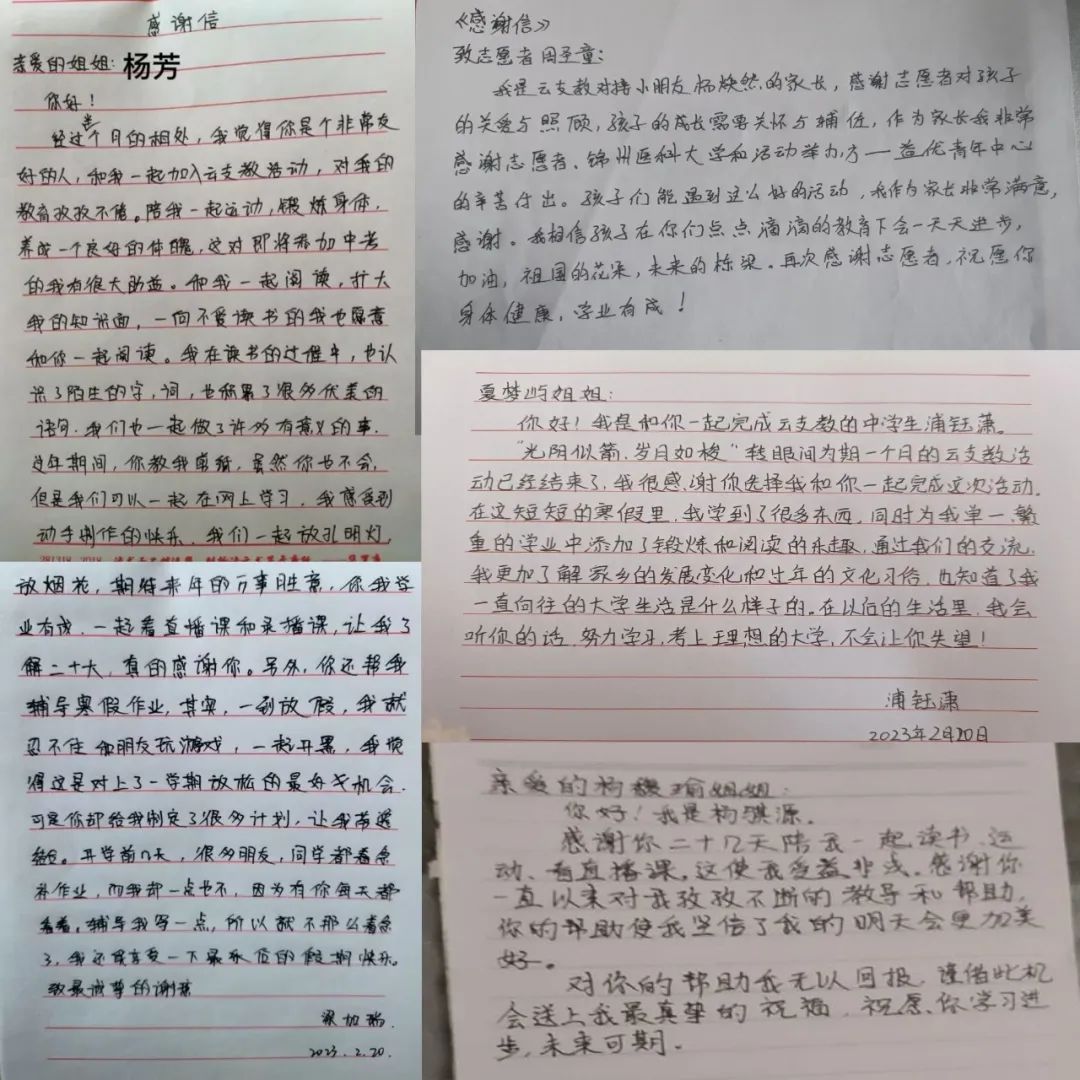 感谢信
亲爱的姐姐：杨芳
你好！
经过一个月的相处，我觉得你是个非常友
好的人，和我一起加入云支教活动，对我的
教育孜孜不倦。陪我一起运动，锻炼身体，
养成一个良好的体魄，这对即将参加中考
的我有很大助益。和我一起阅读，扩大
我的知识面，一向不爱读书的我也愿意
和你一起阅读。我在读书的过程中，也认
识了陌生的字，词，也积累了很多优美的
语句。我们也一起做了许多有意义的事。
过年期间，你教我剪纸，虽然你也不会，
但是我们可以一起在网上学习，我感受到
动手制作的快乐，我们一起放孔明灯，
放烟花，期待来年的万事胜意，你我学
业有成。一起看直播课和录播课，让我了
解二十大，真的感谢你。另外，你还帮我
辅导寒假作业，其实，一到放假，我就
忍不住和朋友玩游戏，一起开黑，我觉
得这是对上了一学期放松的最好机会。
可是你却给我制定了很多计划，让我
开学前几天，很多朋友，同学都着急
补作业，而我却一点也不，因为有你每天都
看着，辅导我写一点，所以就不那么着急
了，我还能享受一下最后的假期快乐。
致最诚挚的谢意
梁加瑞
2023.2.20.
《感谢信》
致志愿者周圣童：
我是云支教对接小朋友杨焕然的家长，感谢志愿者对孩子
的关爱与照顾，孩子的成长需要关怀与辅佐，作为家长我非常
感谢志愿者、锦州医科大学和活动举办方——益优青年中心
的辛苦付出。孩子们能遇到这么好的活动，我作为家长非常满意，
感谢。我相信孩子在你们点点滴滴的教育下会一天天进步，
加油，祖国的花朵，未来的栋梁。再次感谢志愿者，祝愿你
身体健康，学业有成！
夏梦屿姐姐：
你好！我是和你一起完成云支教的中学生浦钰潇。
“光阴似箭，岁月如梭”转眼间为期一个月的云支教活
动已经结束了，我很感谢你选择我和你一起完成这次活动。
在这短短的寒假里，我学到了很多东西，同时为我单一、繁
重的学业中添加了锻炼和阅读的乐趣，通过我们的交流，
我更加了解家乡的发展变化和过年的文化习俗，也知道了我
一直向往的大学生活是什么样子的。在以后的生活里，我会
听你的话，努力学习，考上理想的大学，不会让你失望！
浦钰潇
2023年2月20日
亲爱的杨瑜姐姐：
你好！我是杨骐源。
感谢你二十几天陪我一起读书、运
动、看直播课。这使我受益非浅。感谢你
一直以来对我孜孜不断的教导和帮助，
你的帮助使我坚信了我的明天会更加美
好。
对你的帮助我无以回报，谨借此机
会送上我最真挚的祝福，祝愿你学习进
步，未来可期。